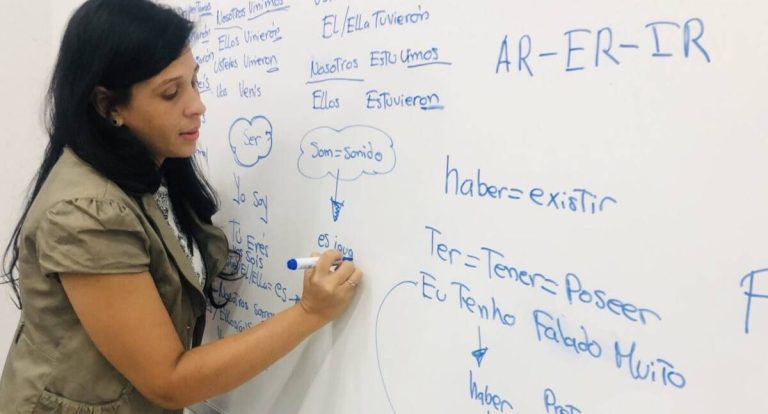 Nosotros Vinimos
Ellos Vinierón
Ustedes Vinieron
Vos Venís
El/Ella Tuvierón
Nosotros Estuvimos
Ellos Estuvieron
AR-ER-IR
Ser
Yo Soy
Tú Erés
Sois
El/Ella=es
Nosotros Somos
Som=sonido
es igua
haber=existir
Ter=Tener=Poseer
Eu Tenho Falado Muito
haber